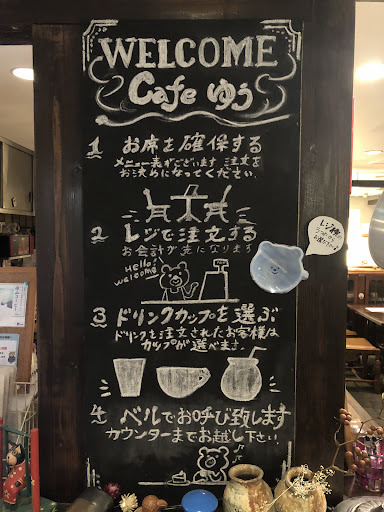 WELCOME
Cafe ゆう
1 お席を確保する
メニュー表がございます 注文を
お決めになってください.
2. レジで注文する
お会計が先になります
Hello!
welcome
3 ドリンクカップを選ぶ
ドリンクを注文されたお客様は
カップが選べます。
4. ベルでお呼び致します
カウンターまでお越し下さい.